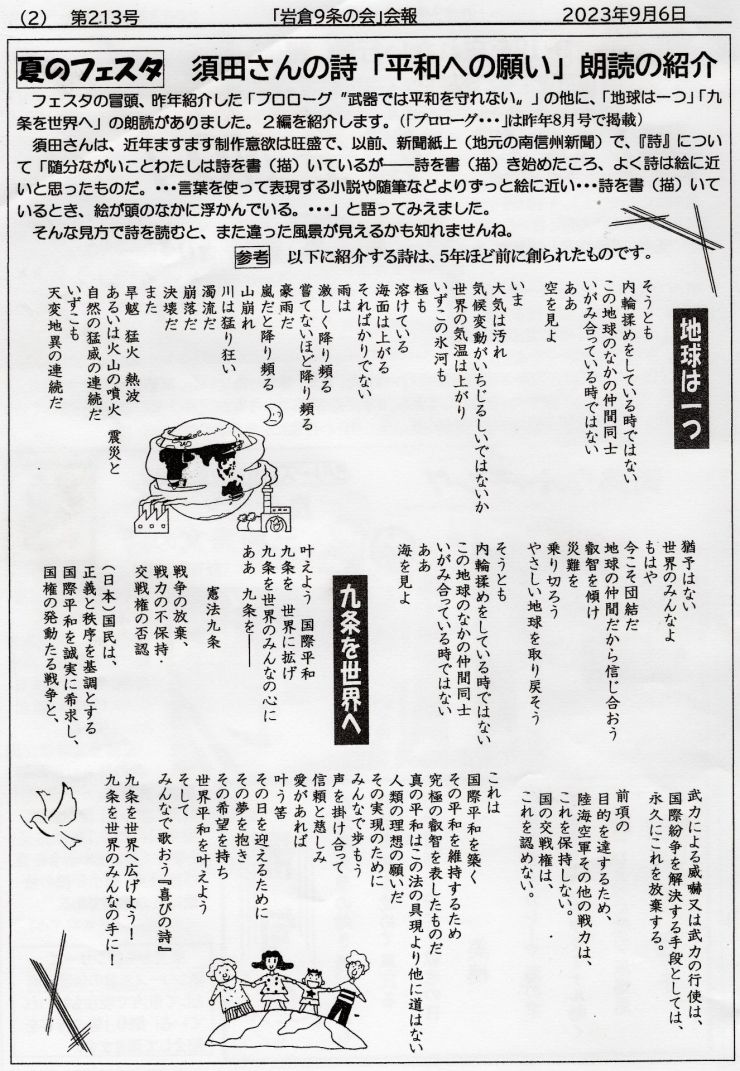 (2) 第213号 「岩倉9条の会」会報 2023年9月6日
夏のフェスタ 須田さんの詩「平和への願い」朗読の紹介
フェスタの冒頭、昨年紹介した「プロローグ〝武器では平和を守れない〟」の他に、「地球は一つ」「九
条を世界へ」の朗読がありました。2編を紹介します。(「プロローグ・・・」は昨年8月号で掲載)
須田さんは、近年ますます制作意欲は旺盛で、以前、新聞紙上(地元の南信州新聞)で、『詩』につい
て「随分ながいことわたしは詩を書(描)いているが――詩を書(描)き始めたころ、よく詩は絵に近
いと思ったものだ。・・・言葉を使って表現する小説や随筆などよりずっと絵に近い・・・詩を書(描)いて
いるとき、絵が頭のなかに浮かんでいる。・・・」と語ってみえました。
そんな見方で詩を読むと、また違った風景が見えるかも知れませんね。
参考 以下に紹介する詩は、5年ほど前に創られたものです。
地球は一つ
そうとも
内輪揉めをしている時ではない
この地球のなかの仲間同士
いがみ合っている時ではない
ああ
空を見よ
いま
大気は汚れ
気候変動がいちじるしいではないか
世界の気温は上がり
いずこの氷河も
極も
溶けている
海面は上がる
そればかりでない
雨は
激しく降り頻る
嘗てないほど降り頻る
豪雨だ
嵐だと降り頻る
山崩れ
川は猛り狂い
濁流だ
崩落だ
決壊だ
また
旱魃 猛火 熱波
あるいは火山の噴火 震災と
自然の猛威の連続だ
いずこも
天変地異の連続だ
猶予はない
世界のみんなよ
もはや
今こそ団結だ
地球の仲間だから信じ合おう
叡智を傾け
災難を
乗り切ろう
やさしい地球を取り戻そう
そうとも
内輪揉めをしている時ではない
この地球のなかの仲間同士
いがみ合っている時ではない
ああ
海を見よ
九条を世界へ
叶えよう 国際平和
九条を 世界に拡げ
九条を世界のみんなの心に
ああ 九条を――
憲法九条
戦争の放棄、
戦力の不保持・
交戦権の否認
(日本)国民は、
正義と秩序を基調とする
国際平和を誠実に希求し、
国権の発動たる戦争と、
武力による威嚇又は武力の行使は、
国際紛争を解決する手段としては、
永久にこれを放棄する。
前項の
目的を達するため、
陸海空軍その他の戦力は、
これを保持しない。
国の交戦権は、
これを認めない。
これは
国際平和を築く
その平和を維持するため
究極の叡智を表したものだ
真の平和はこの法の具現より他に道はない
人類の理想の願いだ
その実現のために
みんなで歩もう
声を掛け合って
信頼と慈しみ
愛があれば
叶う筈
その日を迎えるために
その夢を抱き
その希望を持ち
世界平和を叶えよう
そして
みんなで歌おう『喜びの詩』
九条を世界へ広げよう!
九条を世界のみんなの手に!